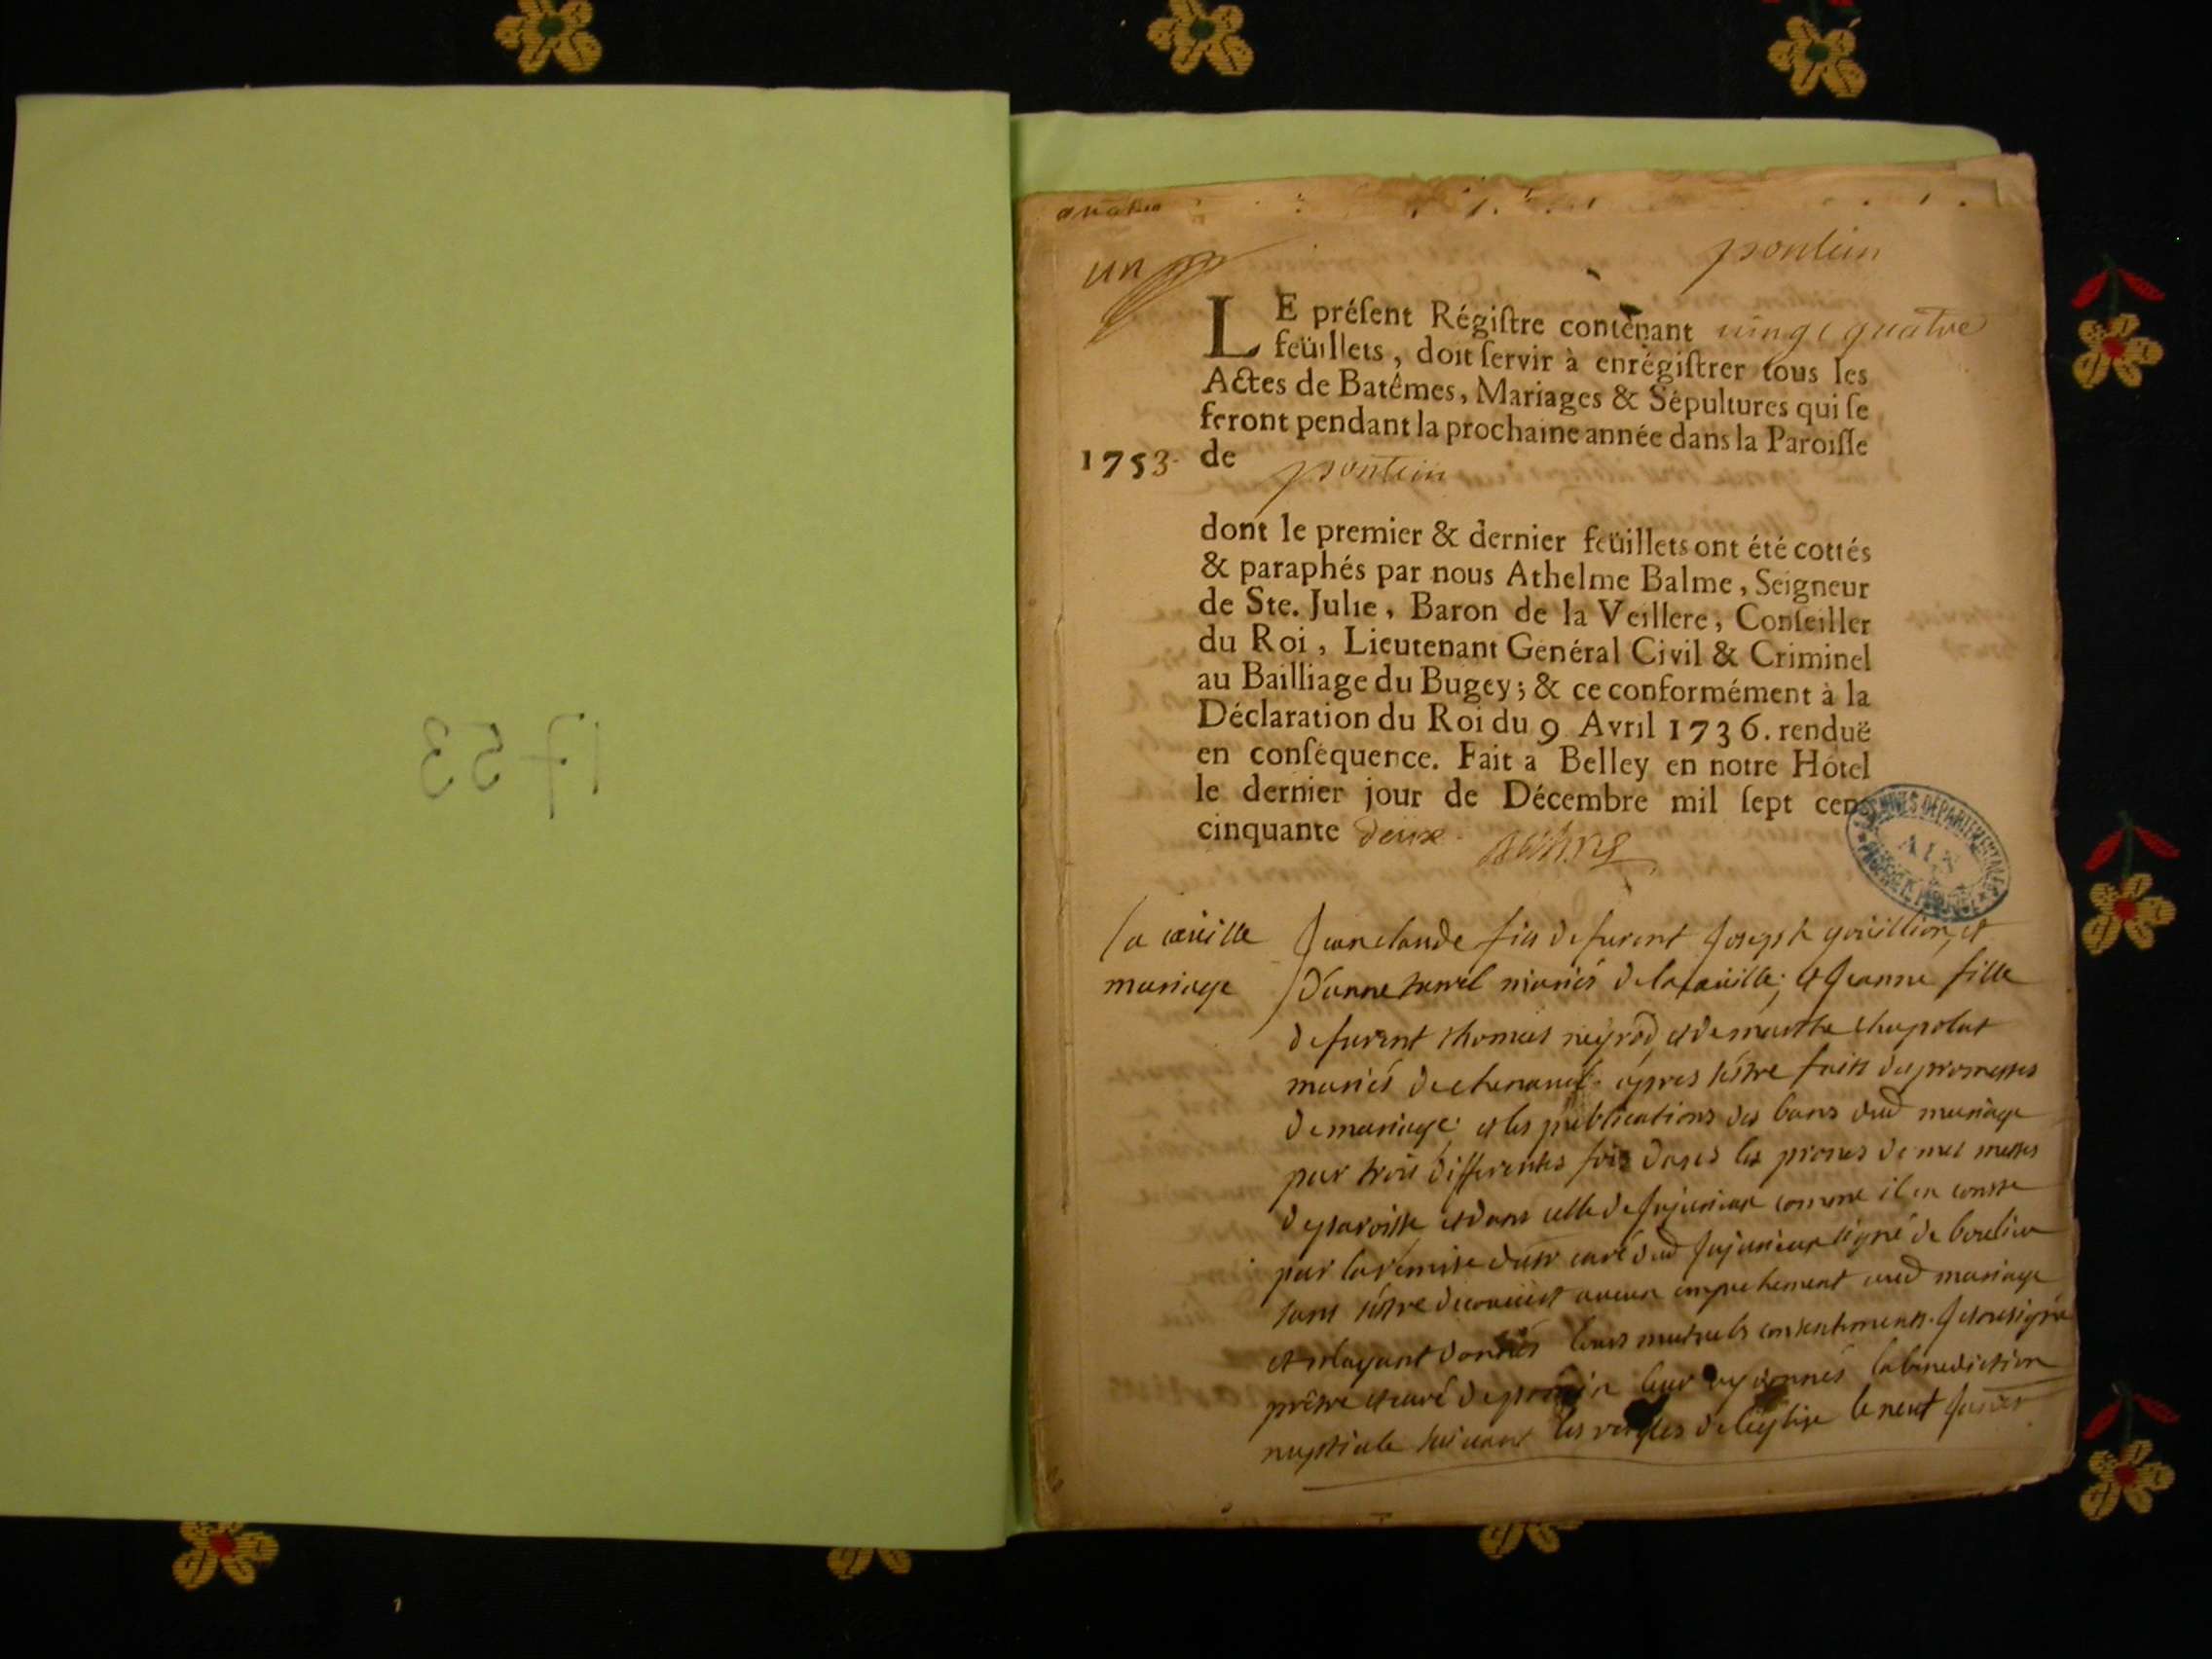 1753
un
pontein
LE préſent Régiſtre contenant vingt quatre
feüillets, doit ſervir à enrégiſtrer tous les
Actes de Batêmes, Mariages & Sépultures qui ſe
feront pendant la prochaine année dans la Paroiſſe
1753. de pontein
dont le premier & dernier feüillets ont été cottés
& paraphés par nous Athelme Balme, Seigneur
de Ste. Julie, Baron de la Veillere, Conſeiller
du Roi, Lieutenant Général Civil & Criminel
au Bailliage du Bugey; & ce conformément à la
Déclaration du Roi du 9 Avril 1736. renduë
en conſéquence. Fait a Belley en notre Hôtel
le dernier jour de Décembre mil ſept cens
cinquante deux. Balme
ARCHIVES DÉPARTEMENTALES
AIN
la
mariage
Jean claude fils defunt Joseph et
mariés de et Jeanne fille
defunt thomas et de marthe chapolat
mariés de apres s'éstre faits des promesses
de mariage; et les publications des bans dud mariage
par trois differentes fois dans les prones de mes messes
de paroisse et dans celle de Jujurieux comme il en conste
par la remise du sr curé dud Jujurieux signé de
sans s'éstre decouvert aucun empechement aud mariage
et ayant donnés leurs mutuels consentements. Je soussigné
prêtre et curé de pontein leur ay donnés la benediction
nuptiale suivant les regles de l'eglise le neuf